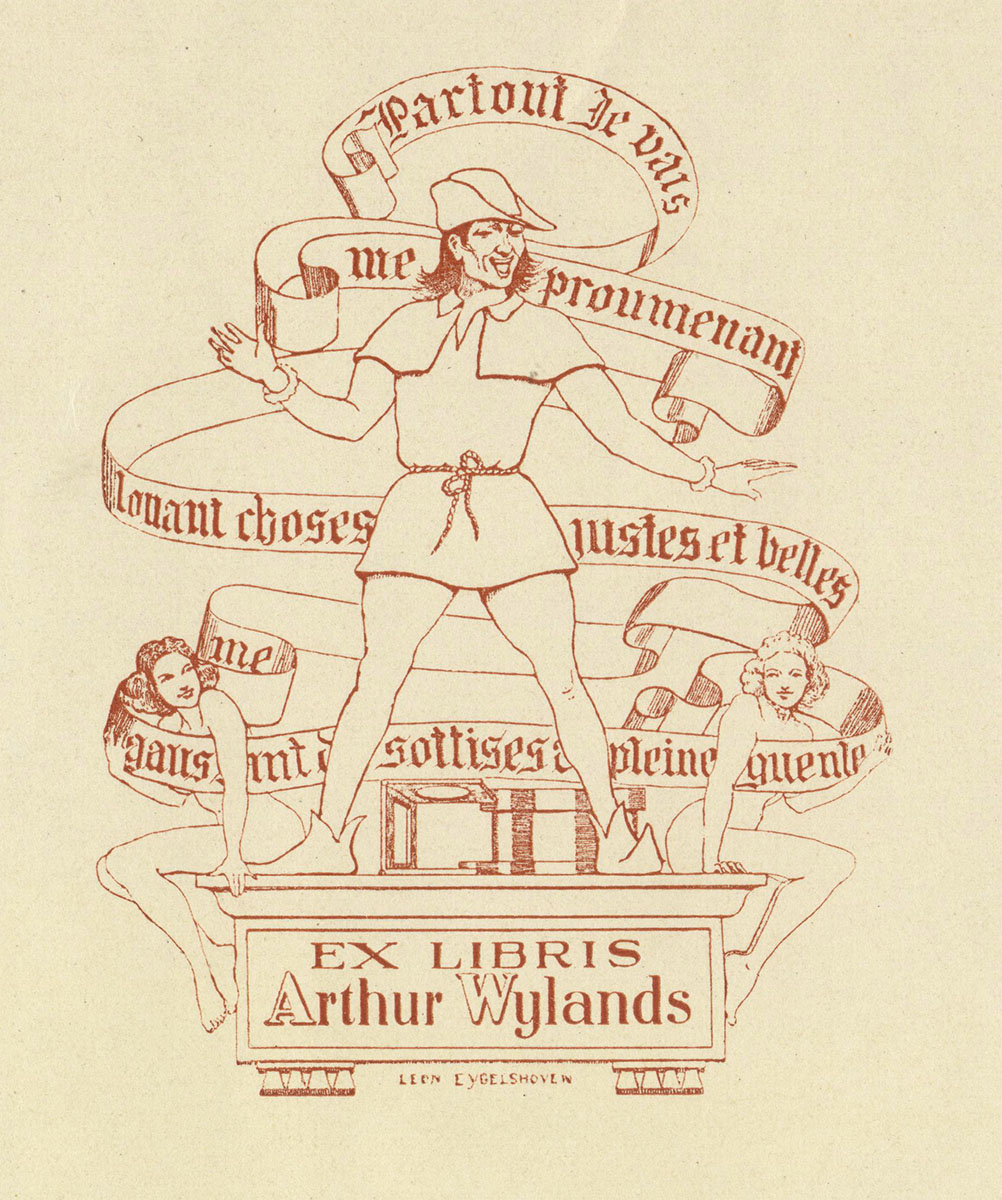 Partout Je vais
me proumenant
louant choses justes et belles
me
sottises pleine
EX LIBRIS
Arthur Wylands
LEON EYGELSHOVEN